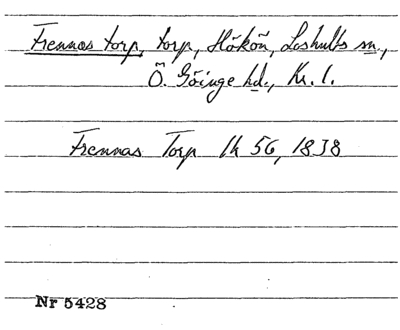 Frennas torp, torp, Hökön, Loshults sn.,
Ö. Göinge hd., Kr. l.
Frennas Torp lk 56, 1838
Nr 5428